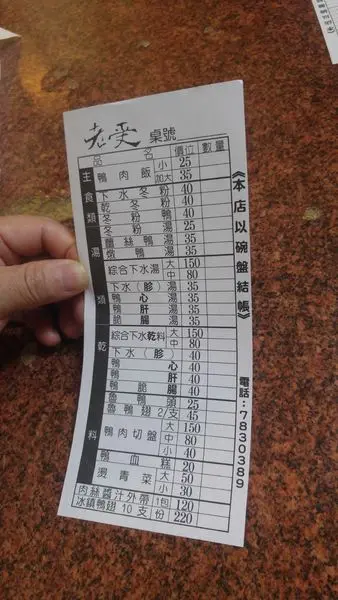 老受 桌號
品名 價位 數量
主食類
鴨肉飯 小 25
加大 35
下水冬粉 40
乾冬粉 40
冬粉鴨 40
冬粉湯 25
湯類
薑絲鴨湯 35
燉鴨湯 35
綜合下水湯 大 150
中 80
下水(胗)湯 35
鴨心湯 35
鴨肝湯 35
脆腸湯 35
乾料
綜合下水乾料 大 150
中 80
下水(胗) 40
鴨心 40
鴨肝 40
鴨脆腸 40
魯鴨頭 25
魯鴨翅2/支 45
鴨肉切盤 大 150
中 80
小 40
鴨血糕 20
燙青菜 大 50
小 30
肉絲醬汁外帶 1包 120
冰鎮鴨翅10支 份 220
《本店以碗盤結帳》
電話:7830389